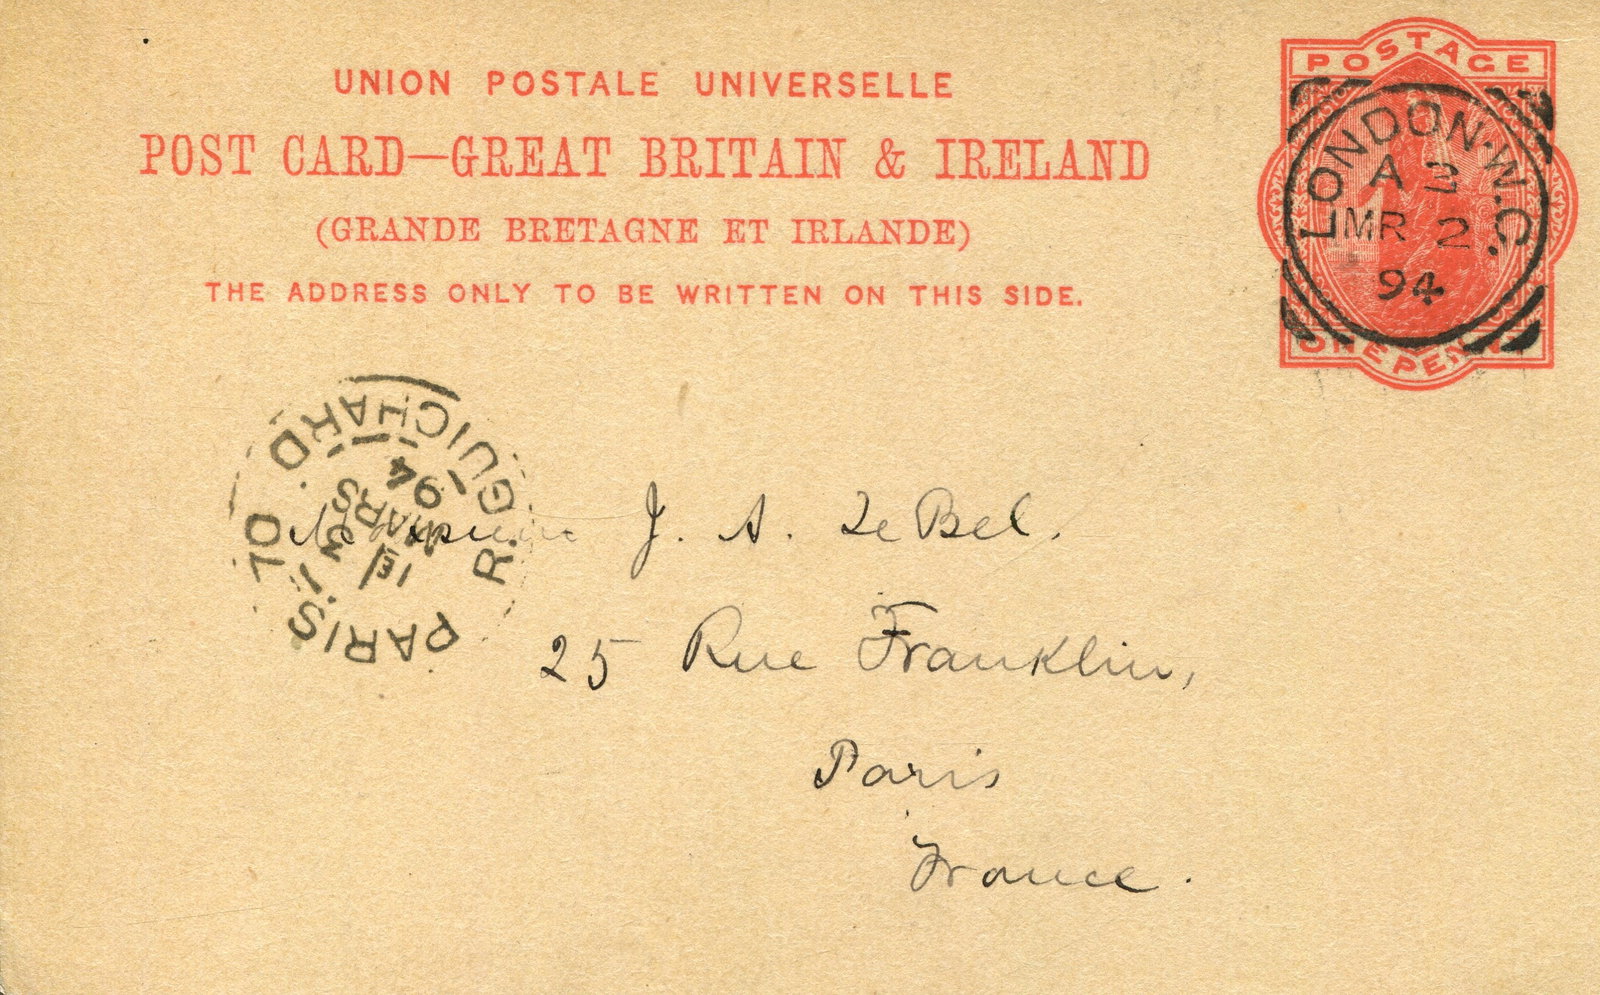 UNION POSTALE UNIVERSELLE
POST CARD—GREAT BRITAIN & IRELAND
(GRANDE BRETAGNE ET IRLANDE)
THE ADDRESS ONLY TO BE WRITTEN ON THIS SIDE.
POSTAGE
ONE PENNY
LONDON·W.C.
A 3
MR 2
94
PARIS. 70 . R. GUICHARD
1E
3
MARS
94
Monsieur J. A. Le Bel.
25 Rue Franklin,
Paris
France.